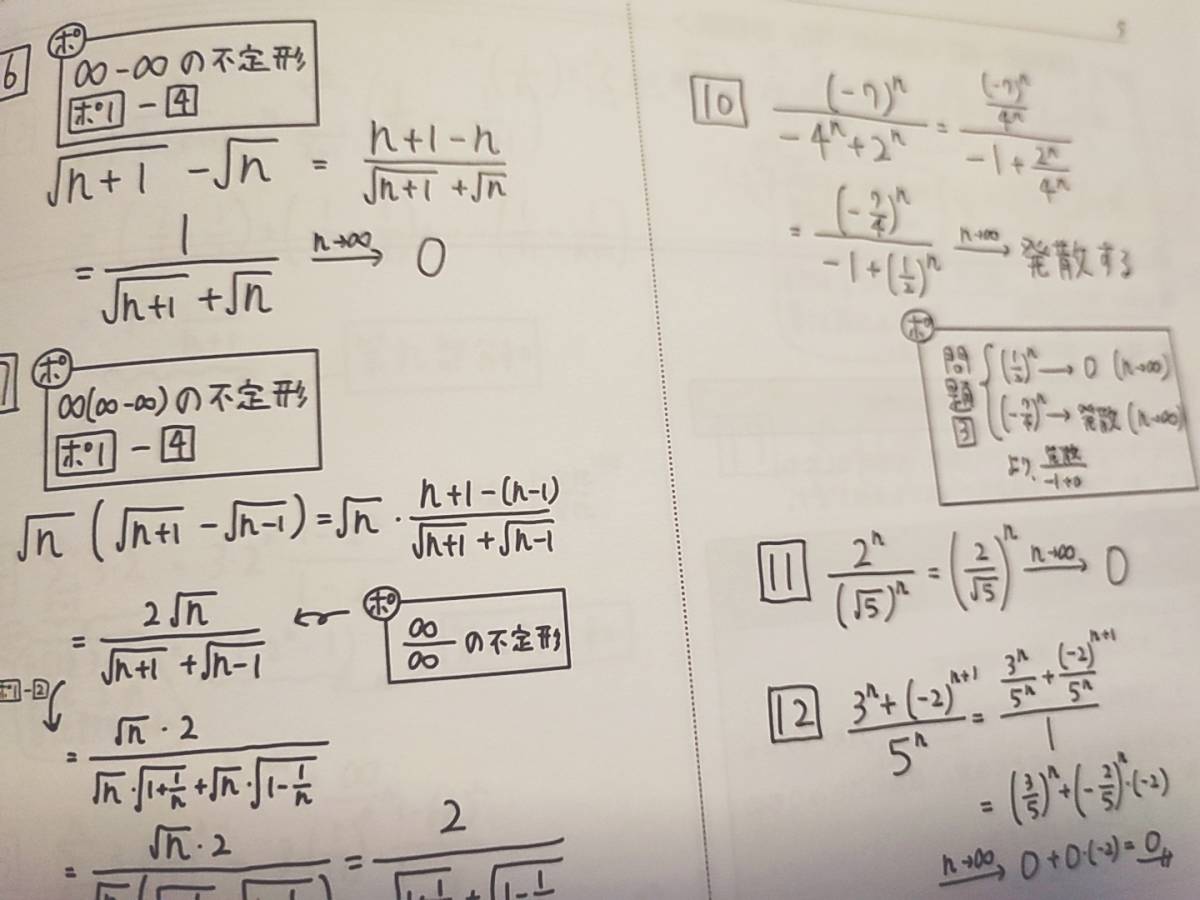 6
ポ
∞-∞の不定形
ポ1 - 4
√(n+1) - √n = (n+1-n)/(√(n+1)+√n)
= 1/(√(n+1)+√n) n→∞ 0
7
ポ
∞(∞-∞)の不定形
ポ1 - 4
√n(√(n+1)-√(n-1)) = √n・(n+1-(n-1))/(√(n+1)+√(n-1))
= 2√n/(√(n+1)+√(n-1)) ←
ポ
∞/∞ の不定形
ポ1-2
= √n・2/(√n・√(1+1/n)+√n・√(1-1/n))
= √n・2
= 2
5
10 (-7)ⁿ/(-4ⁿ+2ⁿ) = ((-7)ⁿ/4ⁿ)/(-1+2ⁿ/4ⁿ)
= (-7/4)ⁿ/(-1+(1/2)ⁿ) n→∞ 発散する
ポ
問題3
(1/2)ⁿ → 0 (n→∞)
(-7/4)ⁿ → 発散 (n→∞)
より、発散/(-1+0)
11 2ⁿ/(√5)ⁿ = (2/√5)ⁿ n→∞ 0
12 (3ⁿ+(-2)ⁿ⁺¹)/5ⁿ = (3ⁿ/5ⁿ+(-2)ⁿ⁺¹/5ⁿ)/1
= (3/5)ⁿ+(-2/5)ⁿ・(-2)
n→∞ 0+0・(-2)=0